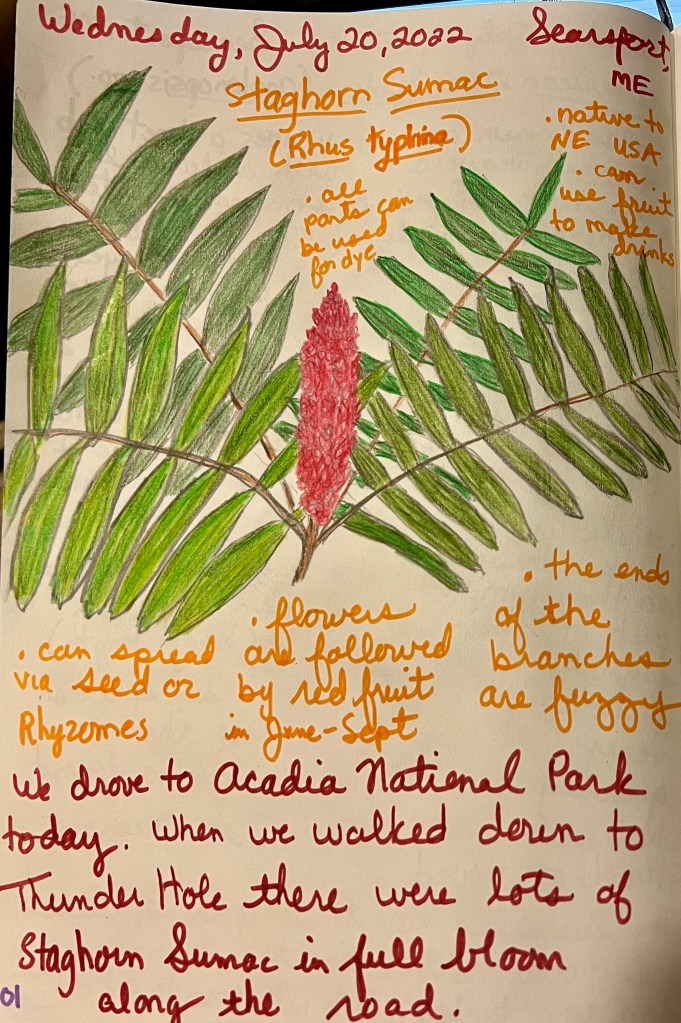 Wednesday, July 20, 2022 Searsport,
ME
Staghorn Sumac
(Rhus typhina)
• native to
NE USA
• can
use fruit
to make
drinks
• all
parts can
be used
for dye
• can spread
via seed or
Rhyzomes
• flowers
are followed
by red fruit
in June-Sept
• the ends
of the
branches
are fuzzy
We drove to Acadia National Park
today. When we walked down to
Thunder Hole there were lots of
Staghorn Sumac in full bloom
along the road.
01